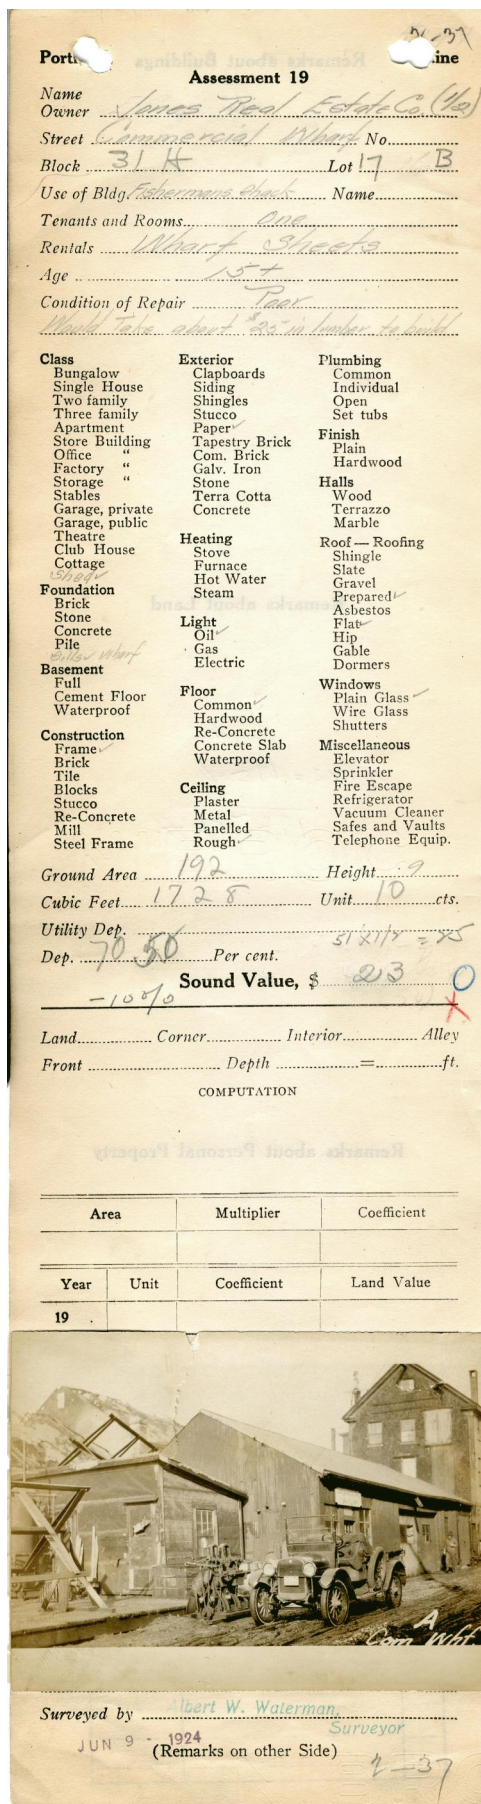 Portl ine
Assessment 19
Name
Owner Jones Real Estate Co. (1/2)
Street Commercial Wharf No.
Block 31 H Lot 17 B
Use of Bldg. Fishermans shack Name
Tenants and Rooms one
Rentals Wharf Sheets
Age 15+
Condition of Repair Poor
Would Take about $25 in lumber to build
Class
Bungalow
Single House
Two family
Three family
Apartment
Store Building
Office "
Factory "
Storage "
Stables
Garage, private
Garage, public
Theatre
Club House
Cottage
Shed ✓
Foundation
Brick
Stone
Concrete
Pile
Wharf
Basement
Full
Cement Floor
Waterproof
Construction
Frame ✓
Brick
Tile
Blocks
Stucco
Re-Concrete
Mill
Steel Frame
Exterior
Clapboards
Siding
Shingles
Stucco
Paper ✓
Tapestry Brick
Com. Brick
Galv. Iron
Stone
Terra Cotta
Concrete
Heating
Stove
Furnace
Hot Water
Steam
Light
Oil ✓
Gas
Electric
Floor
Common ✓
Hardwood
Re-Concrete
Concrete Slab
Waterproof
Ceiling
Plaster
Metal
Panelled
Rough ✓
Plumbing
Common
Individual
Open
Set tubs
Finish
Plain
Hardwood
Halls
Wood
Terrazzo
Marble
Roof — Roofing
Shingle
Slate
Gravel
Prepared ✓
Asbestos
Flat ✓
Hip
Gable
Dormers
Windows
Plain Glass ✓
Wire Glass
Shutters
Miscellaneous
Elevator
Sprinkler
Fire Escape
Refrigerator
Vacuum Cleaner
Safes and Vaults
Telephone Equip.
Ground Area 192 Height 9
Cubic Feet 1728 Unit 10 cts.
Utility Dep.
Dep. 70 50 Per cent.
Sound Value, $ 23
-10%
Land Corner Interior Alley
Front Depth = ft.
COMPUTATION
Area Multiplier Coefficient
Year Unit Coefficient Land Value
19 .
A
Com. Whf
Surveyed by Albert W. Waterman,
Surveyor
JUN 9 - 1924
(Remarks on other Side)